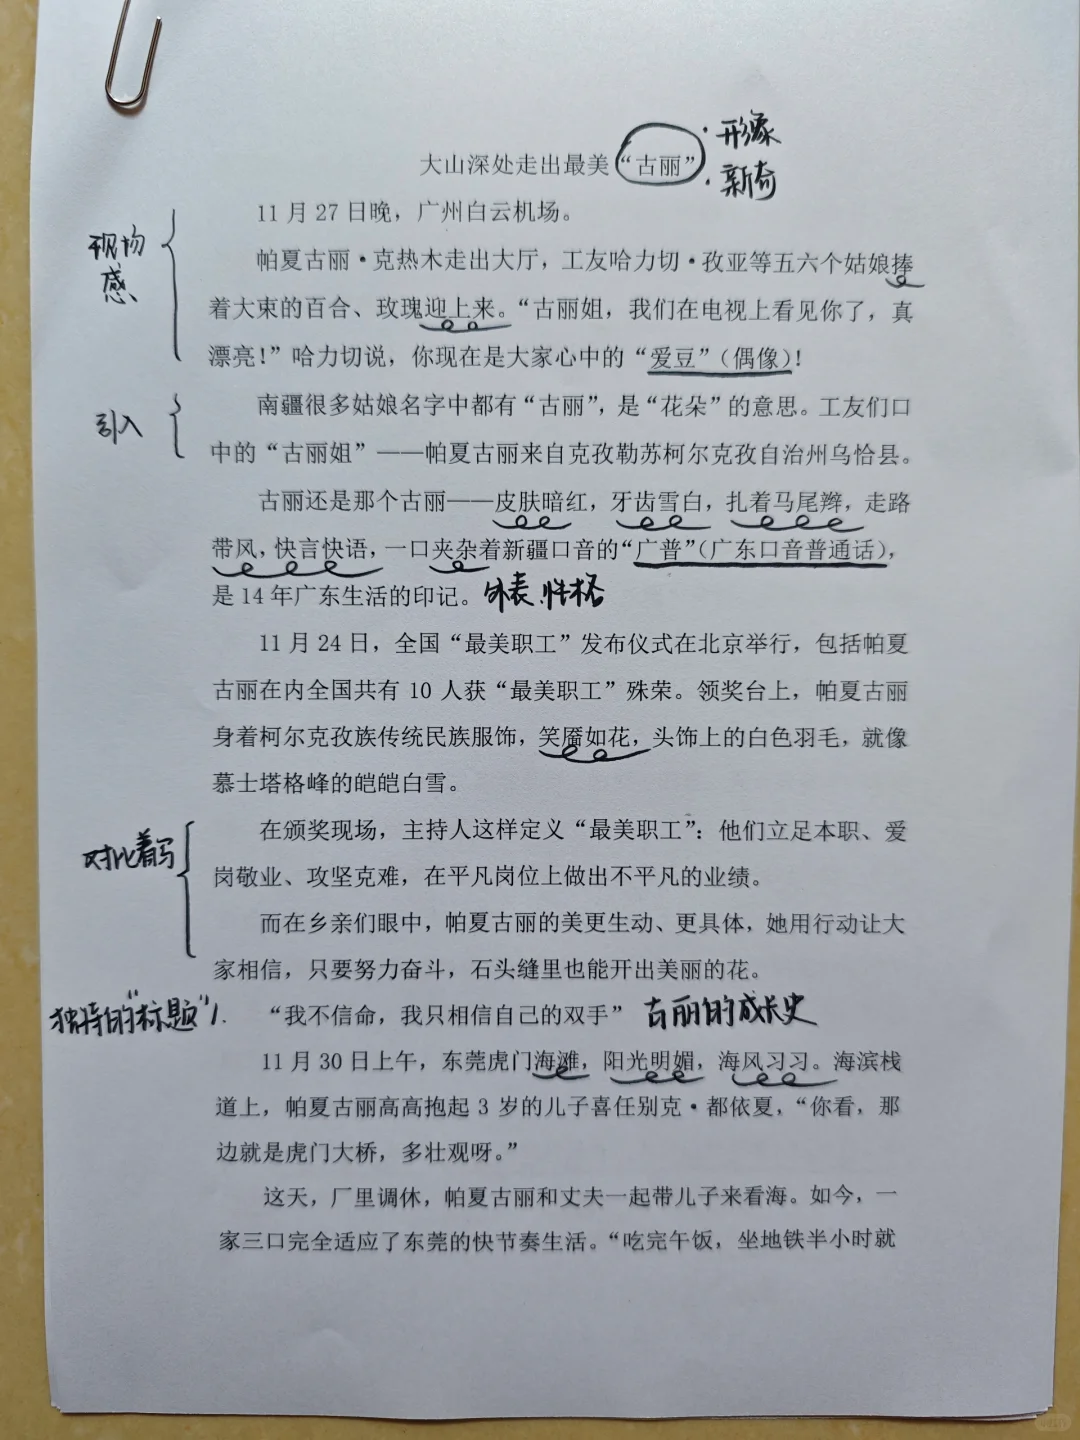 大山深处走出最美“古丽”
·形象
·新奇
11月27日晚，广州白云机场。
现场感
帕夏古丽·克热木走出大厅，工友哈力切·孜亚等五六个姑娘捧
着大束的百合、玫瑰迎上来。“古丽姐，我们在电视上看见你了，真
漂亮！”哈力切说，你现在是大家心中的“爱豆”（偶像）！
引入
南疆很多姑娘名字中都有“古丽”，是“花朵”的意思。工友们口
中的“古丽姐”——帕夏古丽来自克孜勒苏柯尔克孜自治州乌恰县。
古丽还是那个古丽——皮肤暗红，牙齿雪白，扎着马尾辫，走路
带风，快言快语，一口夹杂着新疆口音的“广普”（广东口音普通话），
是14年广东生活的印记。 外表、性格
11月24日，全国“最美职工”发布仪式在北京举行，包括帕夏
古丽在内全国共有10人获“最美职工”殊荣。领奖台上，帕夏古丽
身着柯尔克孜族传统民族服饰，笑靥如花，头饰上的白色羽毛，就像
慕士塔格峰的皑皑白雪。
对比着写
在颁奖现场，主持人这样定义“最美职工”：他们立足本职、爱
岗敬业、攻坚克难，在平凡岗位上做出不平凡的业绩。
而在乡亲们眼中，帕夏古丽的美更生动、更具体，她用行动让大
家相信，只要努力奋斗，石头缝里也能开出美丽的花。
独特的“标题” 1. “我不信命，我只相信自己的双手” 古丽的成长史
11月30日上午，东莞虎门海滩，阳光明媚，海风习习。海滨栈
道上，帕夏古丽高高抱起3岁的儿子喜任别克·都依夏，“你看，那
边就是虎门大桥，多壮观呀。”
这天，厂里调休，帕夏古丽和丈夫一起带儿子来看海。如今，一
家三口完全适应了东莞的快节奏生活。“吃完午饭，坐地铁半小时就